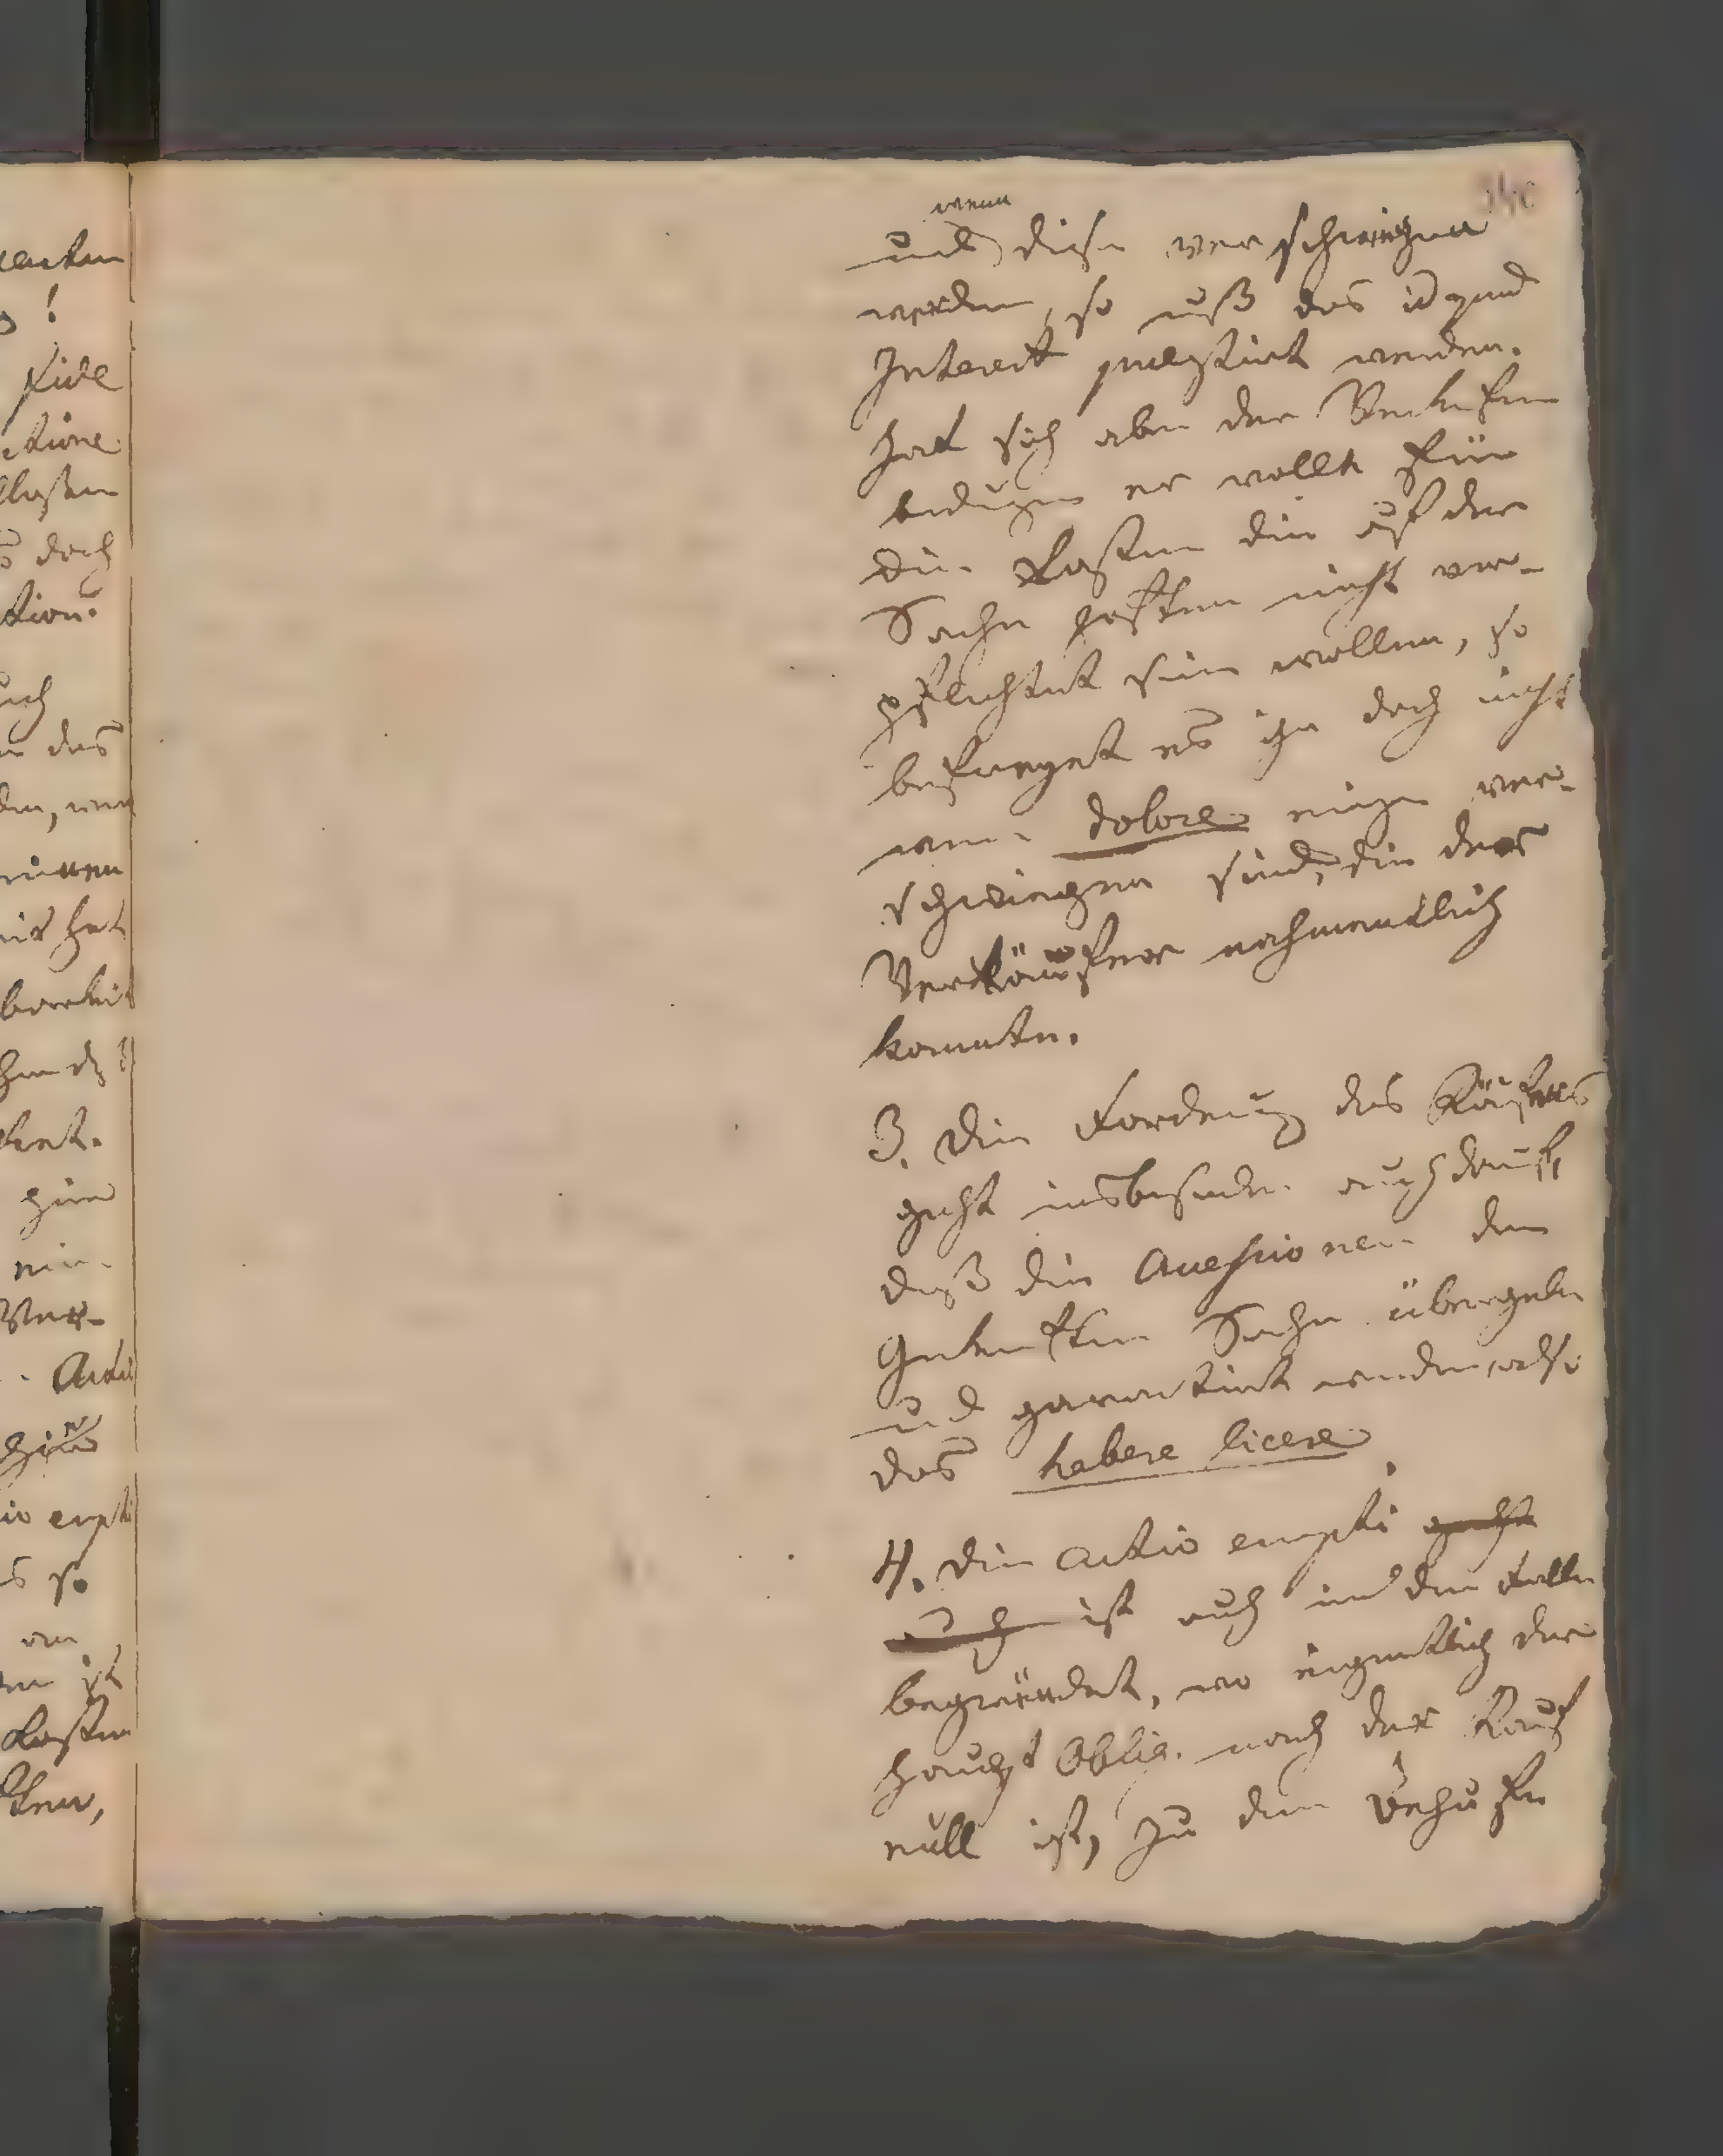 wenn
und diese verschwiegen
werden, so muß das id quod
Interest praestirt werden.
Hat sich aber der Verkäufer
bedungen er wolle für
die Lasten die auf der
Sache haften nicht ver-
pflichtet sein wollen, so
befreyet es ihn doch nicht
wenn dolose einige ver-
schwiegen sind, die der
Verkäufer nahmentlich
kannte.
3. Die Forderung des Käufers
geht insbesondere auch darauf,
daß die Accessionen der
Gekauften Sache übergeben
und garantirt werden, also
das habere licere
4. Die actio empti geht
auch ist auch in den Fällen
begründet, wo eigentlich der
haupt Oblig. nach der Kauf
null ist, zu dem Behufe
lasten
fide
ctione
doch
ction.
das
hat
ein
Ver-
Lasten